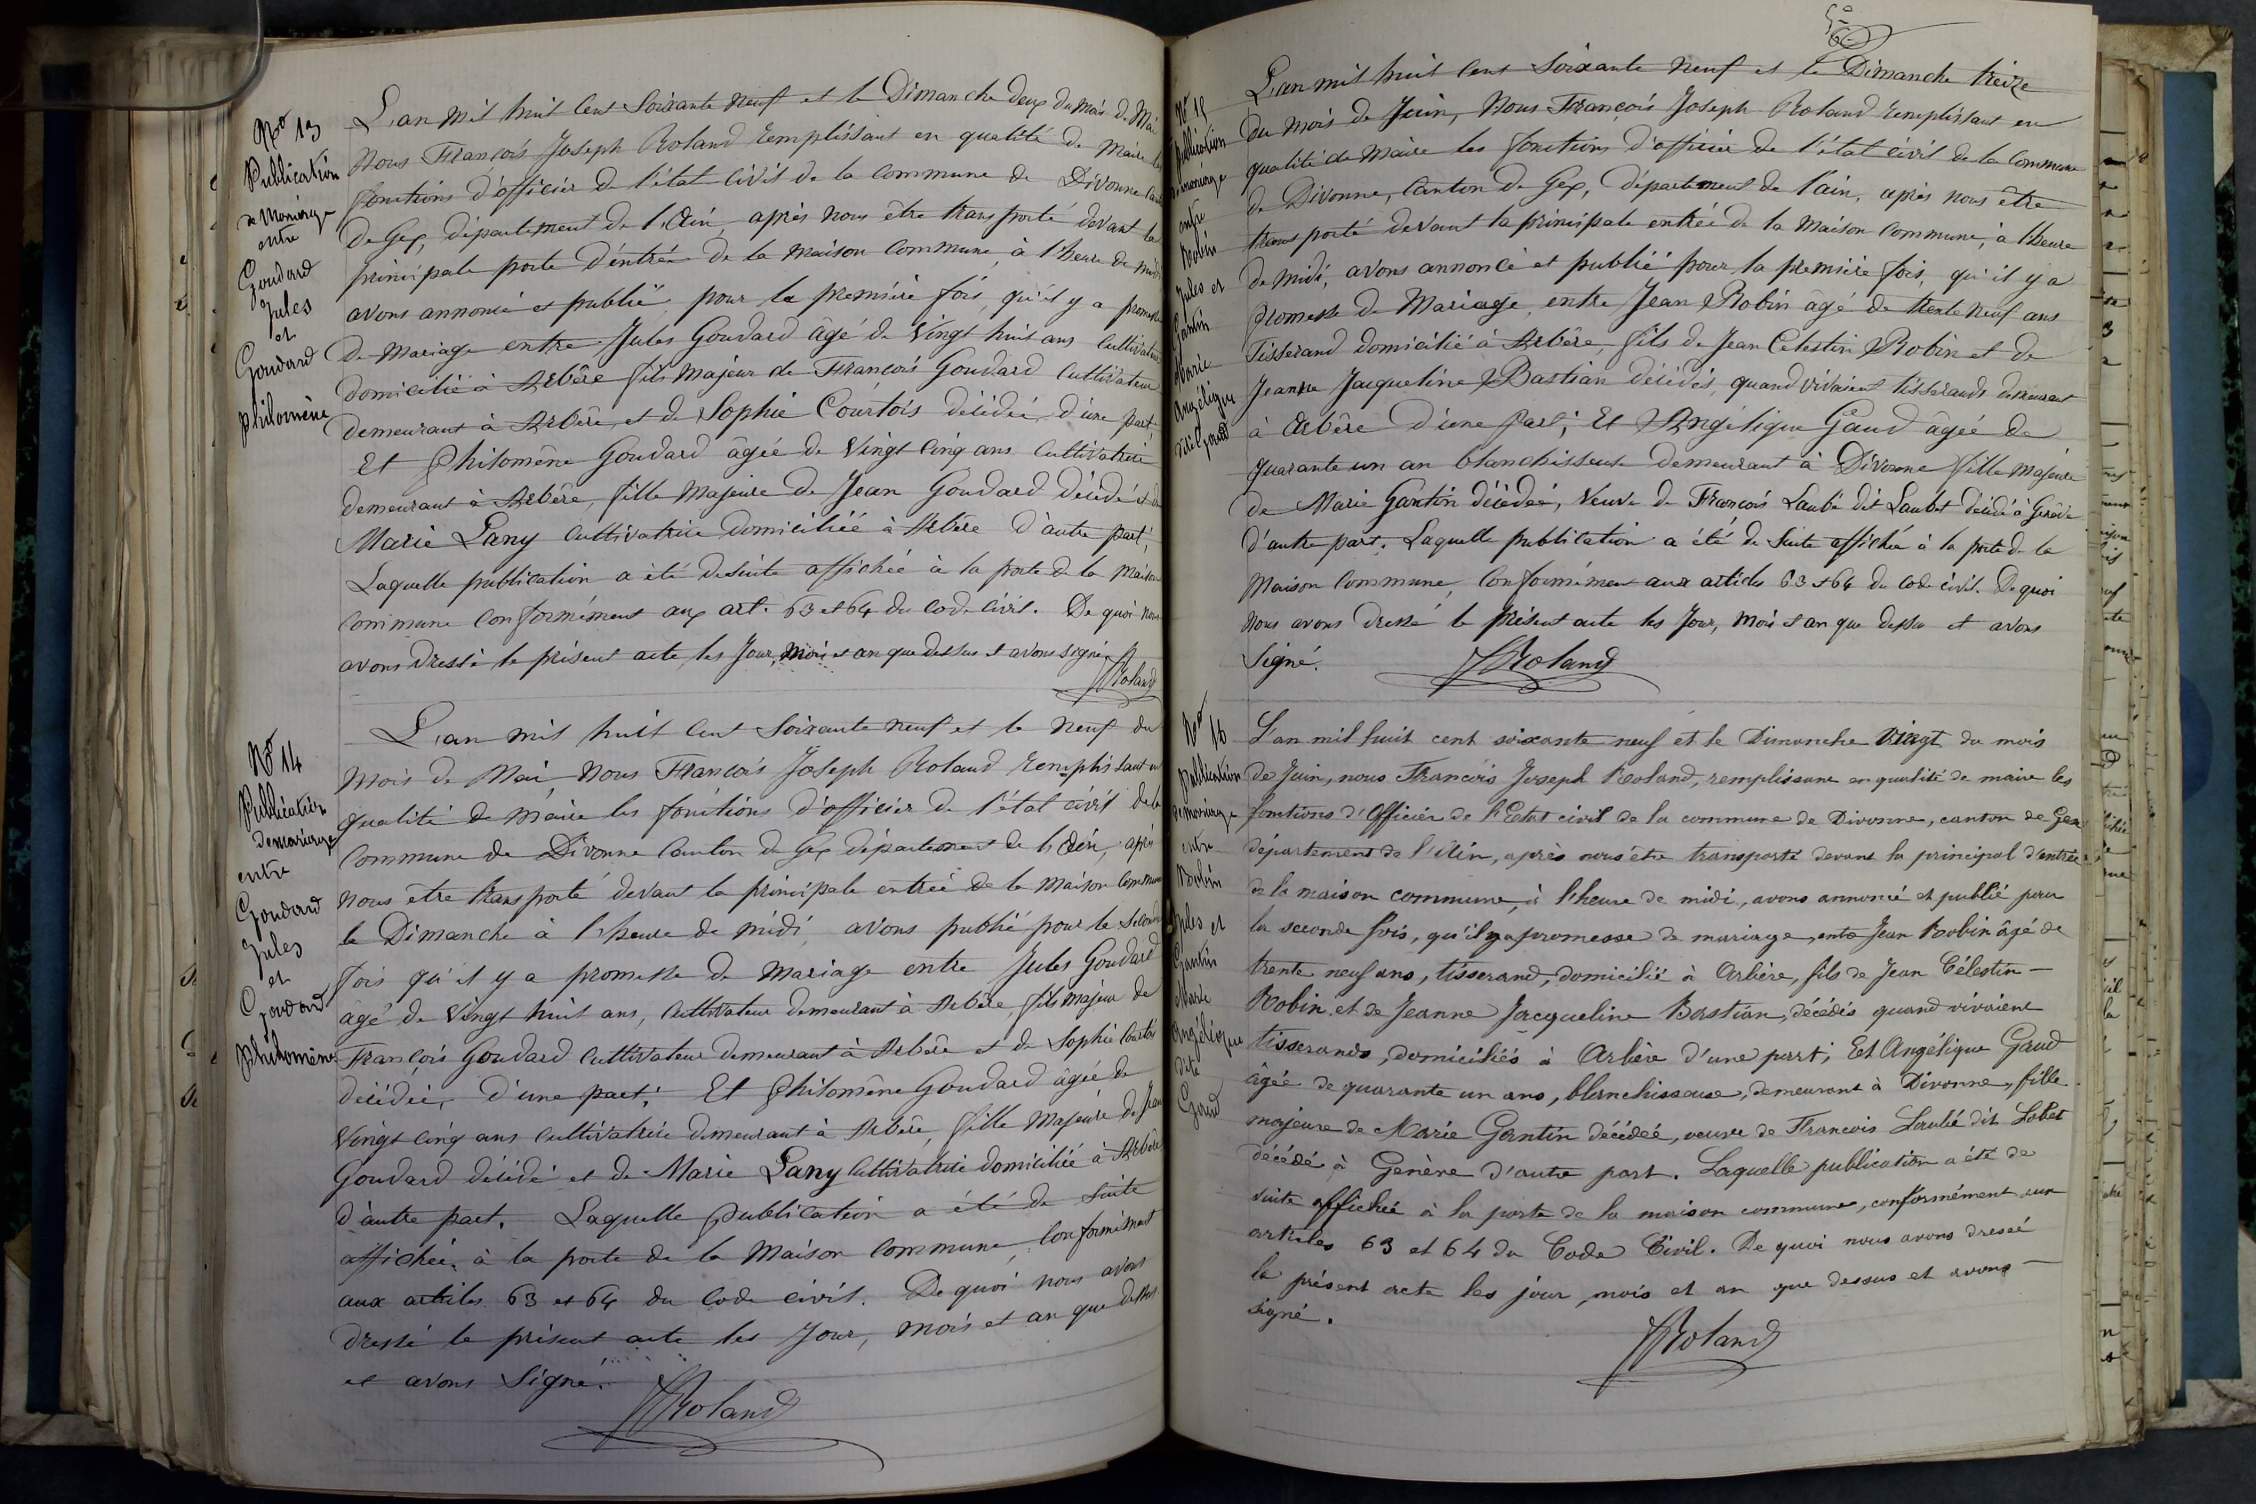 No 13
Publication
de Mariage
entre
Goudard
Jules
et
Goudard
philomène
L'an mil huit cent Soixante neuf et le Dimanche deux du mois de Mai
Nous François Joseph Roland remplissant en qualité de Maire les
fonctions d'officier de l'état civil de la commune de Divonne canton
de Gex, département de l'Ain, après nous être transporté devant la
principale porte d'entrée de la maison commune, à l'heure de midi
avons annoncé et publié pour la première fois, qu'il y a promesse
de mariage entre Jules Goudard âgé de Vingt huit ans cultivateur
domicilié à Arbère fils majeur de François Goudard cultivateur
demeurant à Arbère, et de Sophie Courtois décédée, d'une part,
Et Philomène Goudard âgée de Vingt Cinq ans Cultivatrice
demeurant à Arbère, fille majeure de Jean Goudard décédé et de
Marie Lany cultivatrice domiciliée à Arbère d'autre part,
Laquelle publication a été de suite affichée à la porte de la Maison
commune conformément aux art. 63 et 64 du Code Civil. De quoi nous
avons dressé le présent acte, les Jour, Mois et an que dessus et avons signé
Roland
No 14
Publication
de mariage
entre
Goudard
Jules
et
Goudard
Philomène
L'an mil huit Cent Soixante neuf et le neuf du
mois de Mai, Nous François Joseph Roland remplissant en
qualité de Maire les fonctions d'officier de l'état civil de la
Commune de Divonne Canton de Gex département de l'Ain, après
nous être transporté devant la principale entrée de la maison commune
le Dimanche à l'heure de midi, avons publié pour la seconde
fois qu'il y a promesse de mariage entre Jules Goudard
âgé de Vingt huit ans, cultivateur demeurant à Arbère, fils majeur de
François Goudard cultivateur demeurant à Arbère et de Sophie Courtois
décédée, d'une part; Et Philomène Goudard âgée de
Vingt Cinq ans cultivatrice demeurant à Arbère, fille Majeure de Jean
Goudard décédé et de Marie Lany Cultivatrice domiciliée à Arbère
d'autre part. Laquelle publication a été de suite
affichée à la porte de la Maison commune, conformément
aux articles 63 et 64 du code civil. De quoi nous avons
dressé le présent acte les Jour, mois et an que dessus
et avons Signé.
Roland
No 15
publication
de mariage
entre
Robin
Jules et
Gantin
Marie
Angélique
dite Gaud
L'an mil huit cent Soixante neuf et le Dimanche treize
du mois de Juin, Nous François Joseph Roland remplissant en
qualité de Maire les fonctions d'officier de l'état civil de la Commune
de Divonne, Canton de Gex, département de l'ain, après nous être
transporté devant la principale entrée de la maison commune, à l'heure
de midi, avons annoncé et publié pour la première fois, qu'il y a
promesse de Mariage, entre Jean Robin âgé de trente neuf ans
Tisserand domicilié à Arbère, fils de Jean Celestin Robin et de
Jeanne Jacqueline Bastian décédés, quand vivaient tisserands demeurant
à Arbère d'une part; Et Angélique Gaud âgée de
quarante un an blanchisseuse demeurant à Divonne fille majeure
de Marie Gantin décédée, Veuve de François Laubé dit Laubet décédé à Genève
d'autre part. Laquelle publication a été de suite affichée à la porte de la
Maison commune, Conformément aux articles 63 et 64 du Code civil. De quoi
nous avons dressé le présent acte les Jour, mois et an que dessus et avons
Signé.
Roland
No 16
publication
de mariage
entre
Robin
Jules et
Gantin
Marie
Angélique
dite
Gaud
L'an mil huit cent soixante neuf et le Dimanche vingt du mois
de Juin, nous François Joseph Roland, remplissant en qualité de maire les
fonctions d'Officier de l'Etat civil de la commune de Divonne, canton de Gex
département de l'Ain, après nous être transporté devant la principal d'entrée
de la maison commune, à l'heure de midi, avons annoncé et publié pour
la seconde fois, qu'il y a promesse de mariage, entre Jean Robin âgé de
trente neuf ans, tisserand, domicilié à Arbère, fils de Jean Célestin
Robin et de Jeanne Jacqueline Bastian, décédés quand vivaient
tisserands, domiciliés à Arbère d'une part; Et Angélique Gaud
âgée de quarante un ans, blanchisseuse, demeurant à Divonne, fille
majeure de Marie Gantin décédée, veuve de François Laubé dit Lobet
décédé à Genève d'autre part. Laquelle publication a été de
suite affichée à la porte de la maison commune, conformément aux
articles 63 et 64 du Code Civil. De quoi nous avons dressé
le présent acte les jour, mois et an que dessus et avons
signé.
Roland